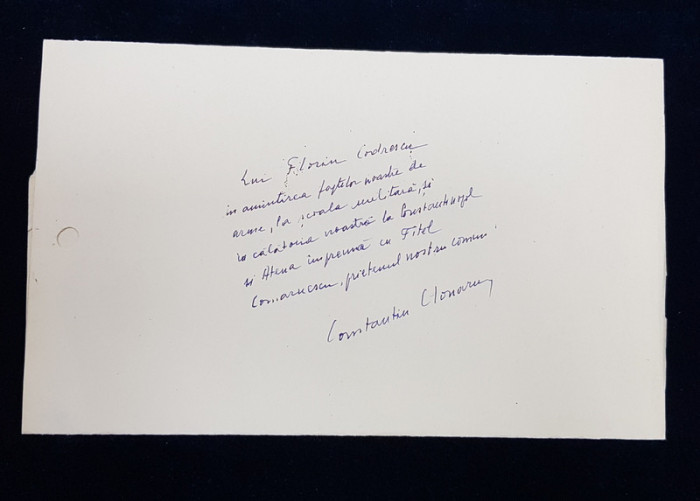 Lui Florin Codrescu
în amintirea faptelor noastre de
arme, la școala militară, și
în călătoria noastră la Constantinopol
și Atena împreună cu Fitel
Comarnescu, prietenul nostru comun.
Constantin Clonaru